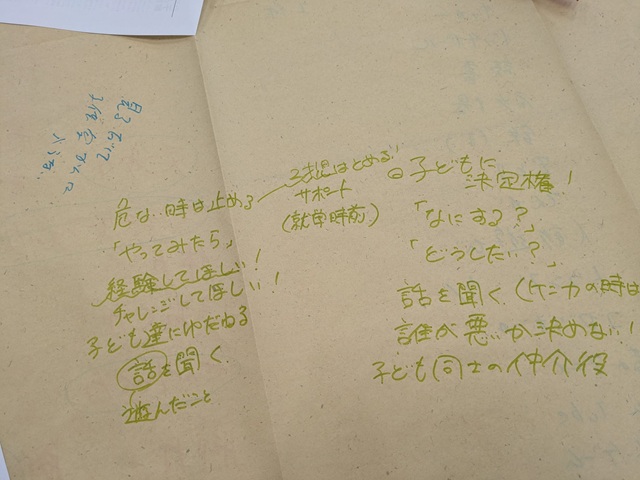 危な 時は止める
「やってみたら」
経験してほしい！
チャレンジしてほしい！
子ども達にゆだねる
話を聞く
遊んだこと
はとめる
サポート
(就学時前)
子どもに
決定権！
「なにする？」
「どうしたい？」
話を聞く (ケンカの時は
誰が悪いか決めない！
子ども同士の仲介役